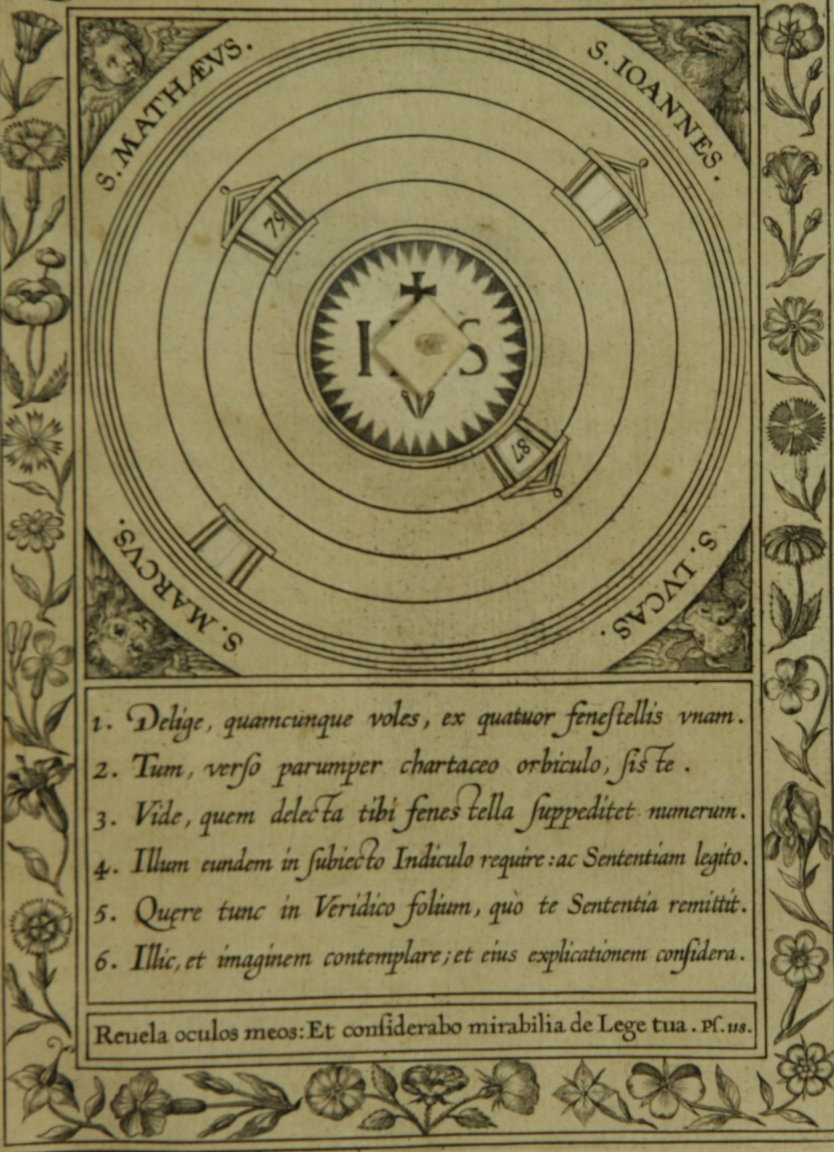 S. MATHÆVS.
S. IOANNES.
75
87
IHS
S. MARCVS.
S. LVCAS.
1. Delige, quamcunque voles, ex quatuor feneſtellis vnam.
2. Tum, verſo parumper chartaceo orbiculo, ſiſte.
3. Vide, quem delecta tibi feneſtella ſuppeditet numerum.
4. Illum eundem in ſubiecto Indiculo require: ac Sententiam legito.
5. Quęre tunc in Veridico folium, quò te Sententia remittit.
6. Illic, et imaginem contemplare; et eius explicationem conſidera.
Reuela oculos meos: Et conſiderabo mirabilia de Lege tua. Pſ. 118.